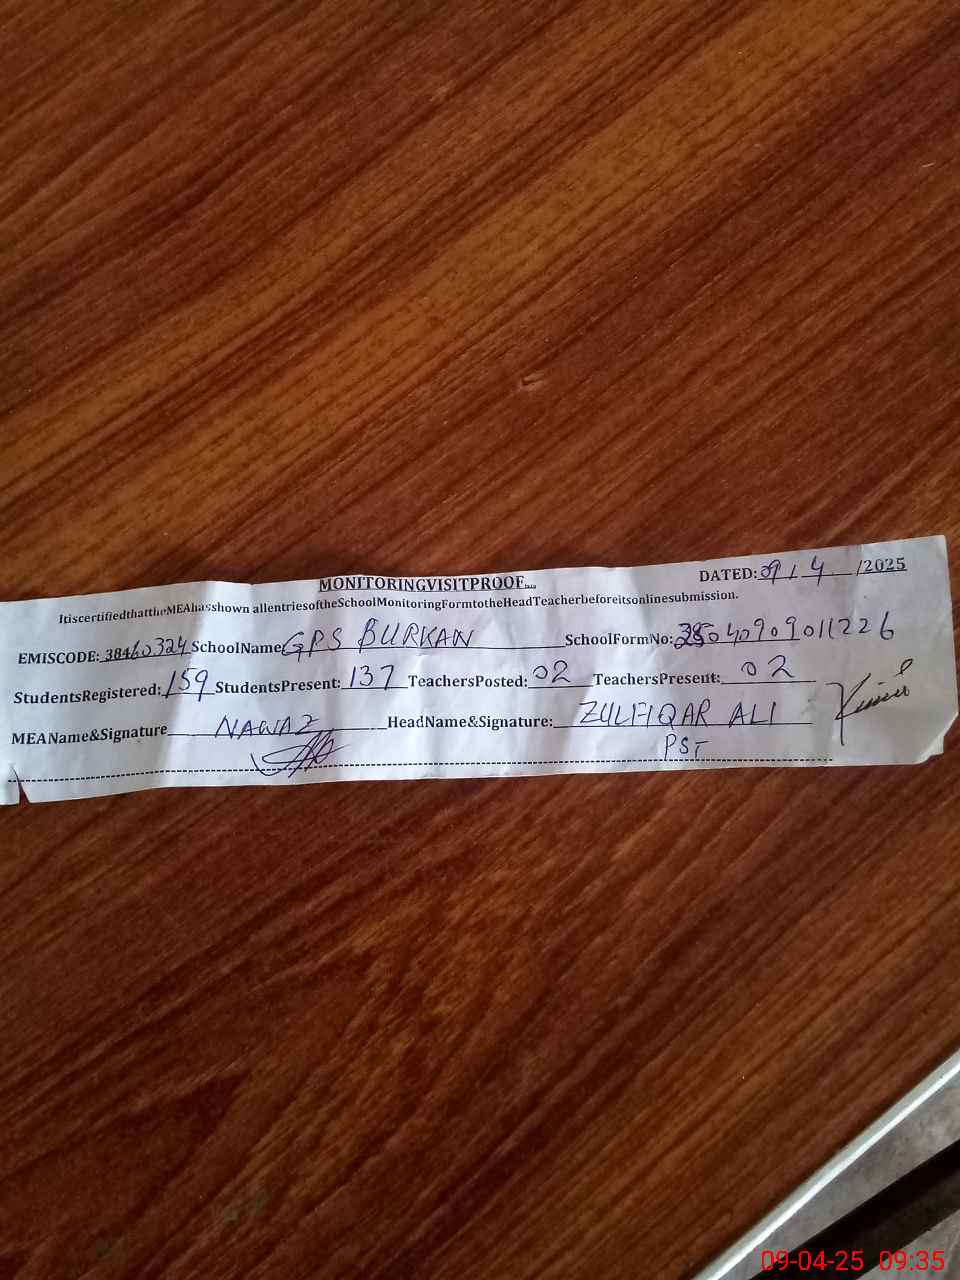 MONITORINGVISITPROOF....
DATED: 09/4/2025
ItiscertifiedthattheMEAhasshown allentriesoftheSchoolMonitoringFormtotheHeadTeacherbeforeitsonlinesubmission.
EMISCODE: 38460324 SchoolName GPS BURKAN SchoolFormNo:
StudentsRegistered: 159 StudentsPresent: 137 TeachersPosted: 02 TeachersPresent: 02
MEAName&Signature NAWAZ HeadName&Signature: ZULFIQAR ALI
PST
09-04-25 09:35